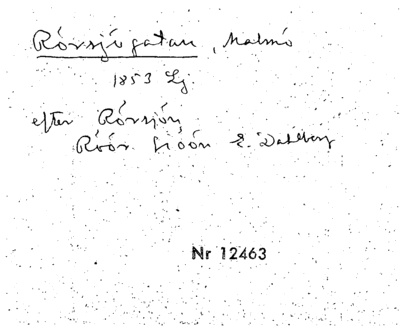 Rörsjögatan, Malmö
1853 Lj.
efter Rörsjön
Röör Siöön E. Dahlberg
Nr 12463